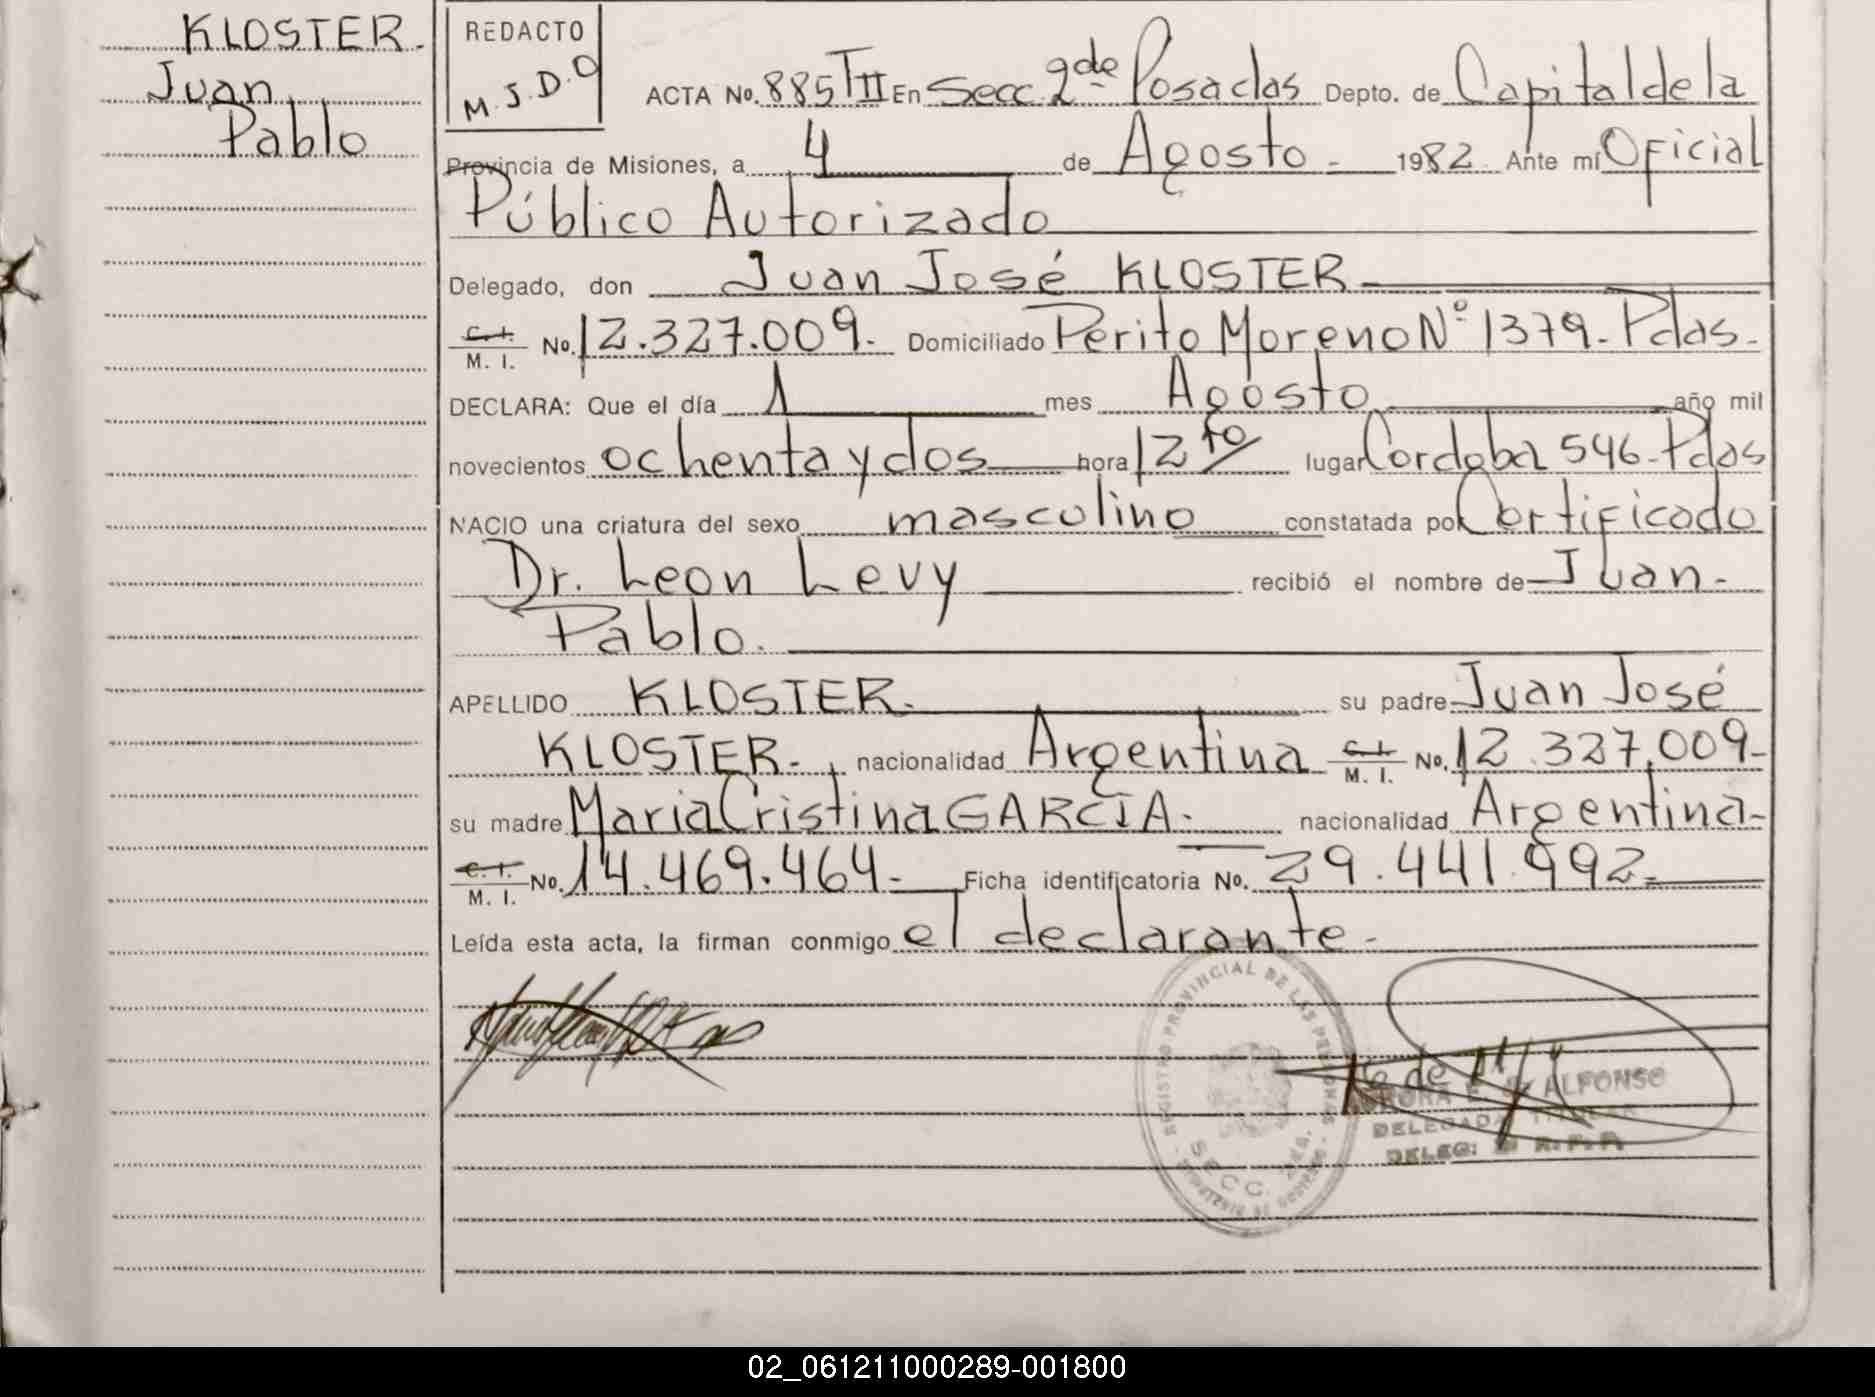 KLOSTER.
Juan
Pablo
REDACTO
M.J.D.O
ACTA No. 885 TII En Secc. 2da de Posadas Depto. de Capital de la
Provincia de Misiones, a 4 de Agosto - 1982 Ante mí Oficial
Público Autorizado
Delegado, don Juan José KLOSTER
C. I.
M. I. No. 12.327.009. Domiciliado Perito Moreno Nº 1379. Pdas.
DECLARA: Que el día 1 mes Agosto año mil
novecientos ochenta y dos hora 12 lugar Cordoba 546. Pdas
NACIO una criatura del sexo masculino constatada por Certificado
Dr. Leon Levy recibió el nombre de Juan.
Pablo.
APELLIDO KLOSTER. su padre Juan José
KLOSTER. nacionalidad Argentina C. I.
M. I. No. 12.327.009-
su madre Maria Cristina GARCÍA. nacionalidad Argentina-
C. I.
M. I. No. 14.469.464- Ficha identificatoria No. 29.441.992-
Leída esta acta, la firman conmigo el declarante.-
REGISTRO PROVINCIAL DE LAS PERSONAS
SECC. 2da.
ALFONSO
DELEGADA TITULAR
DELEG:
02_061211000289-001800